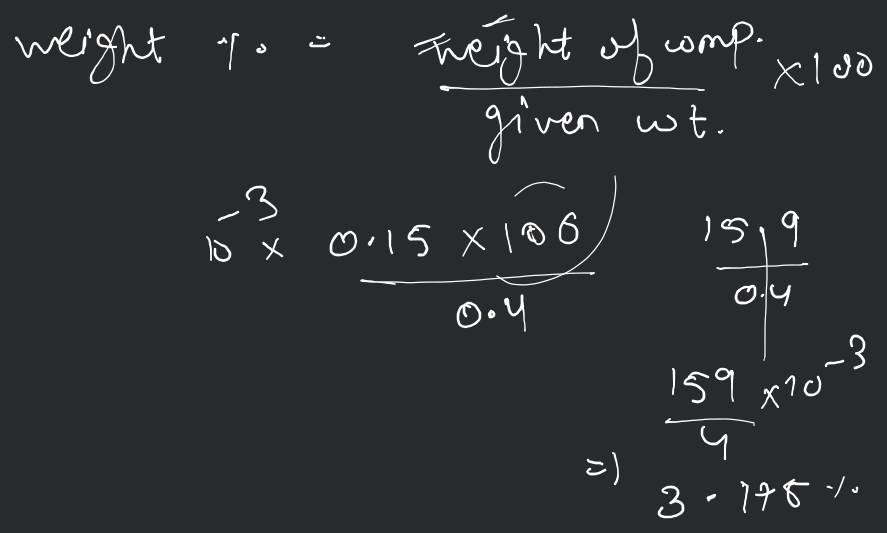 weight % = weight of comp. × 100
given wt.
10⁻³ × 0.15 × 106
0.4
15.9
0.4
159 × 10⁻³
4
=) 3.975 %